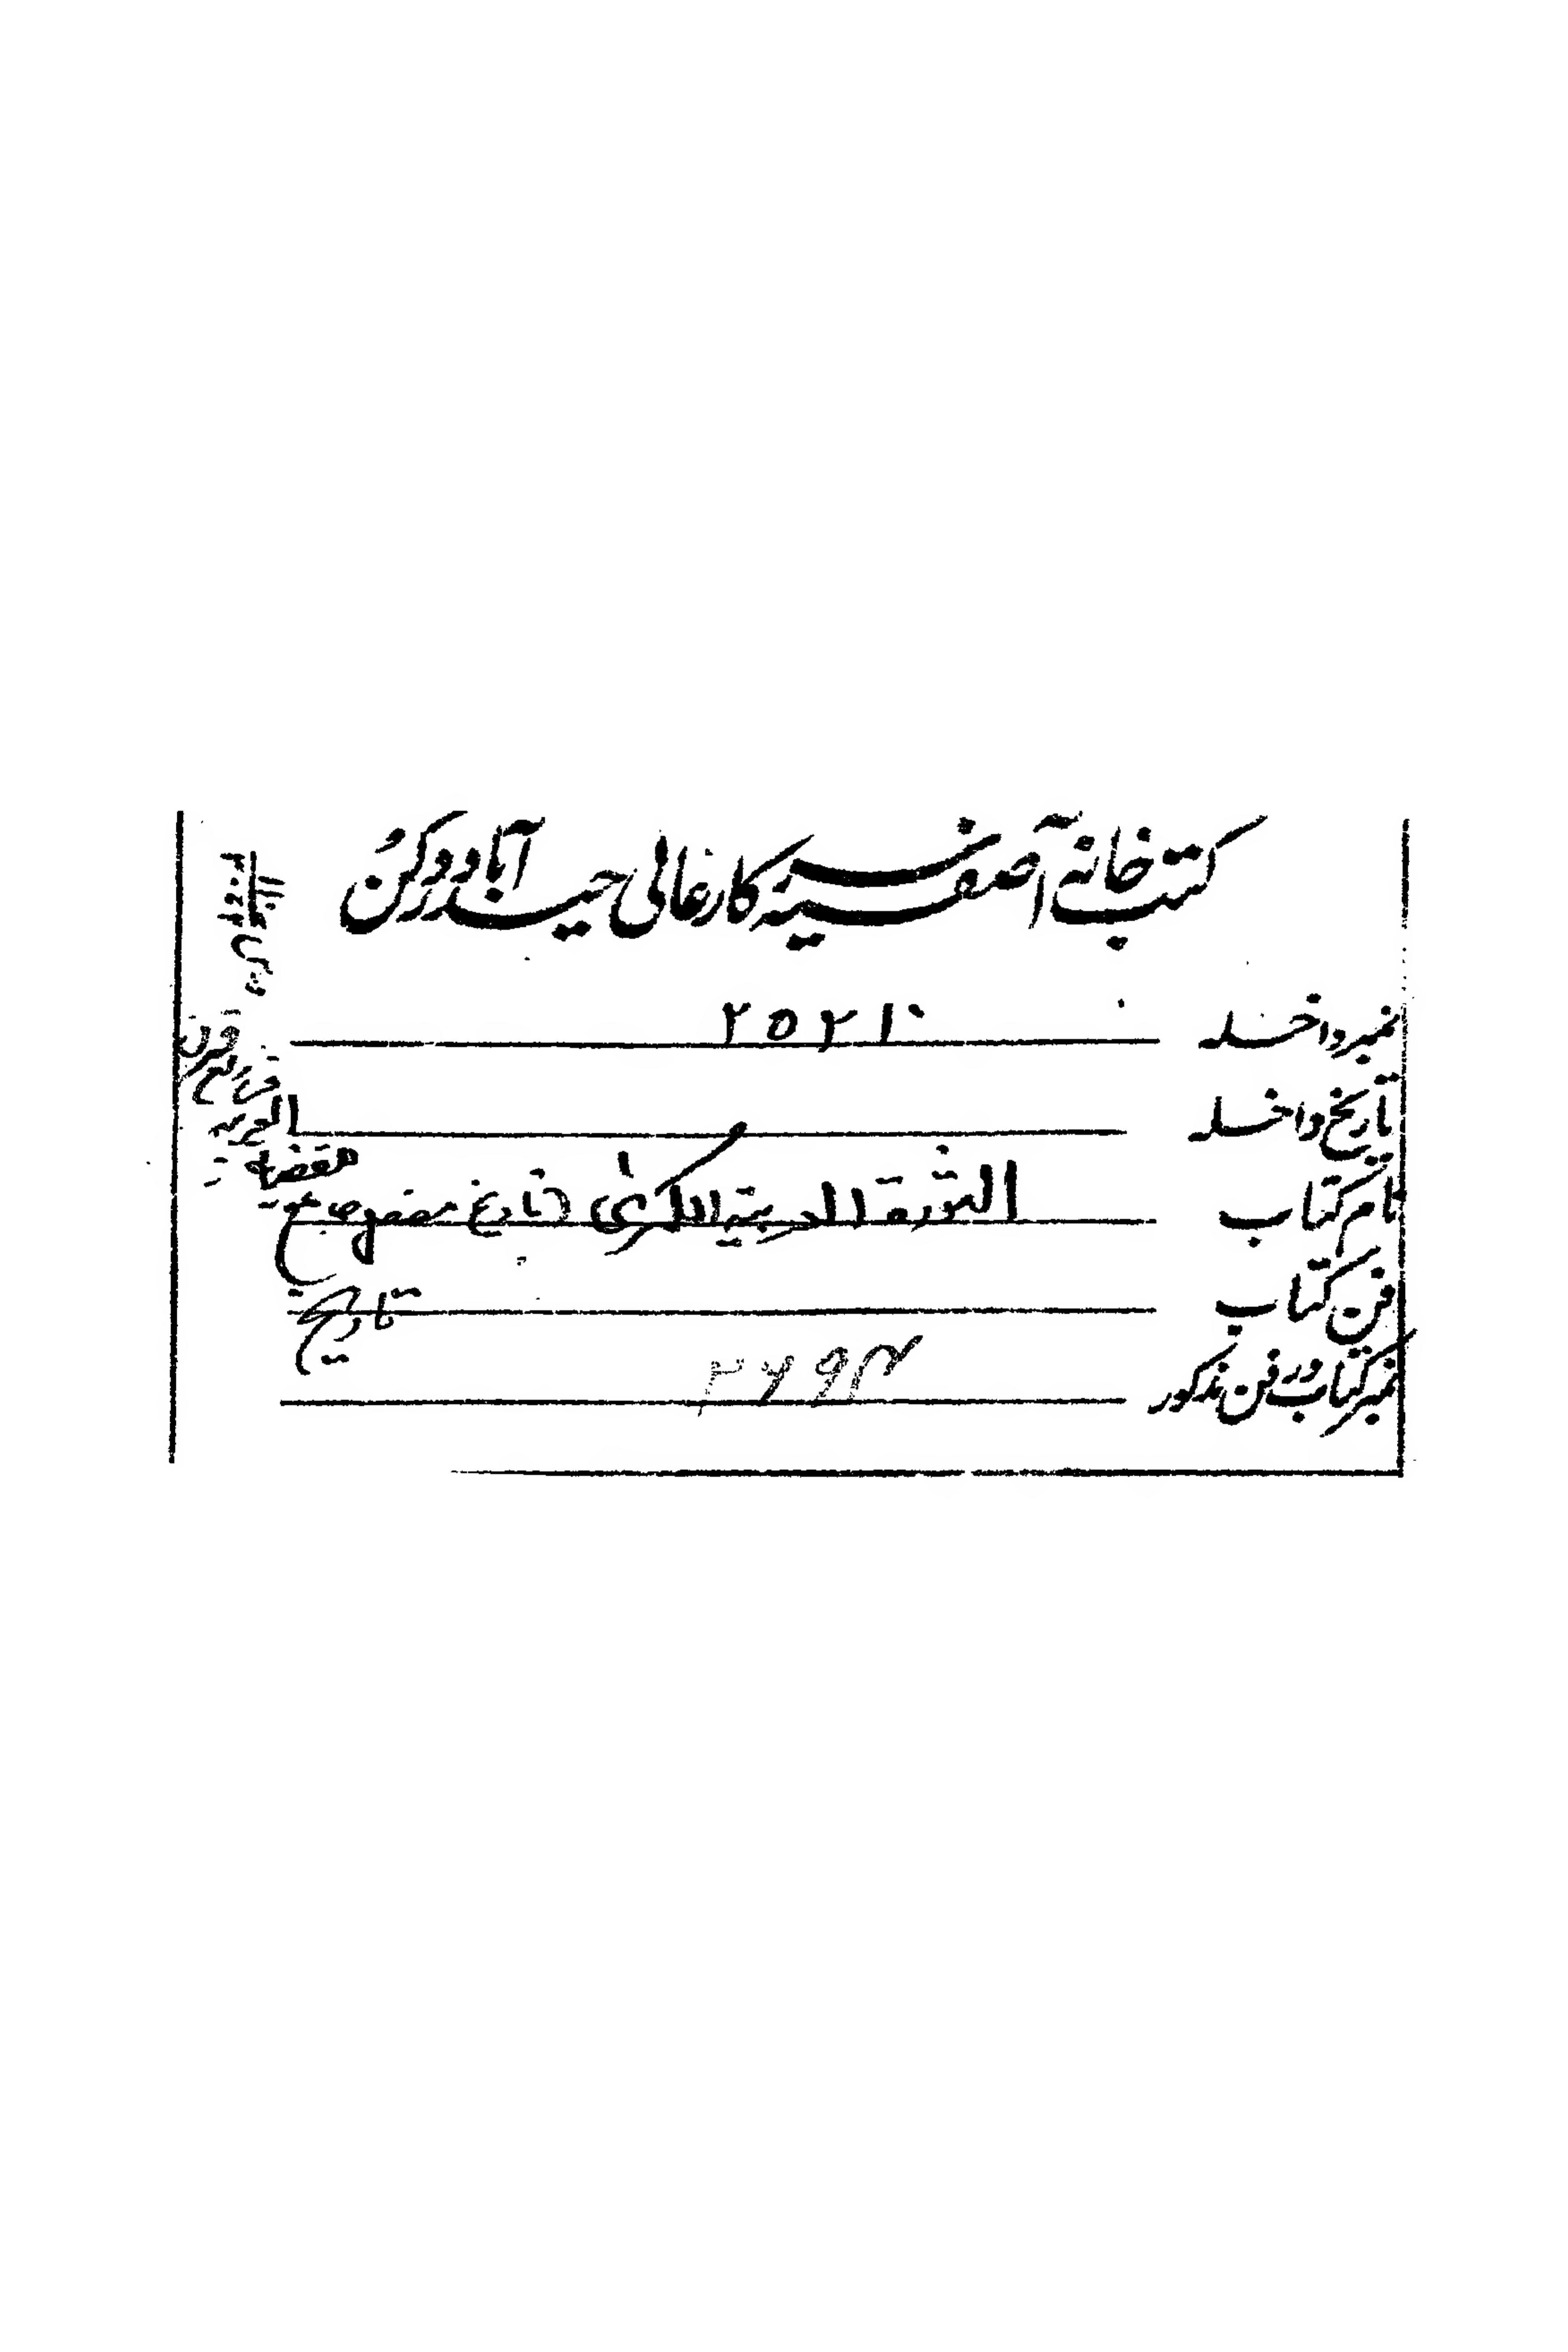 کتب خانہ آصفیہ سرکار عالی حیدرآباد دکن
نمبر داخلہ ۲۵۲۱۰
تاریخ داخلہ
نام کتاب الثورة العربية الكبرى (تاريخ مفصل جامع
للقضية
العربية
في ربع قرن
فن کتاب تاریخ
نمبر کتاب در فن مذکور ۲۶۹۴